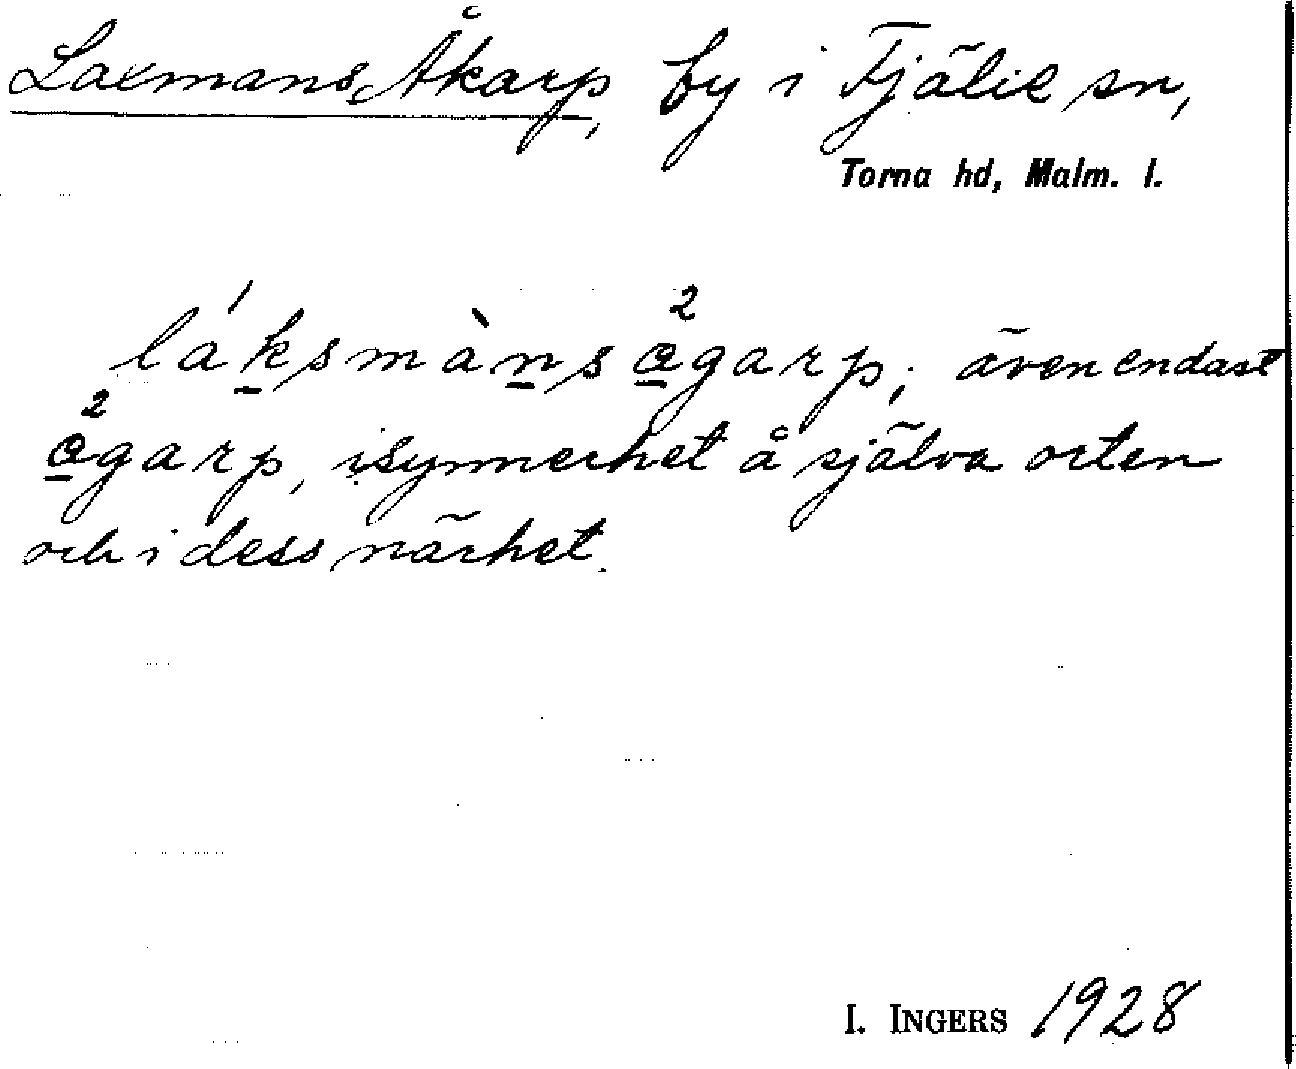 Laxmans Åkarp, by i Fjälie sn,
Torna hd, Malm. l.
láksmàns a²garp; även endast
a²garp, isynnerhet å själva orten
och i dess närhet.
I. INGERS 1928